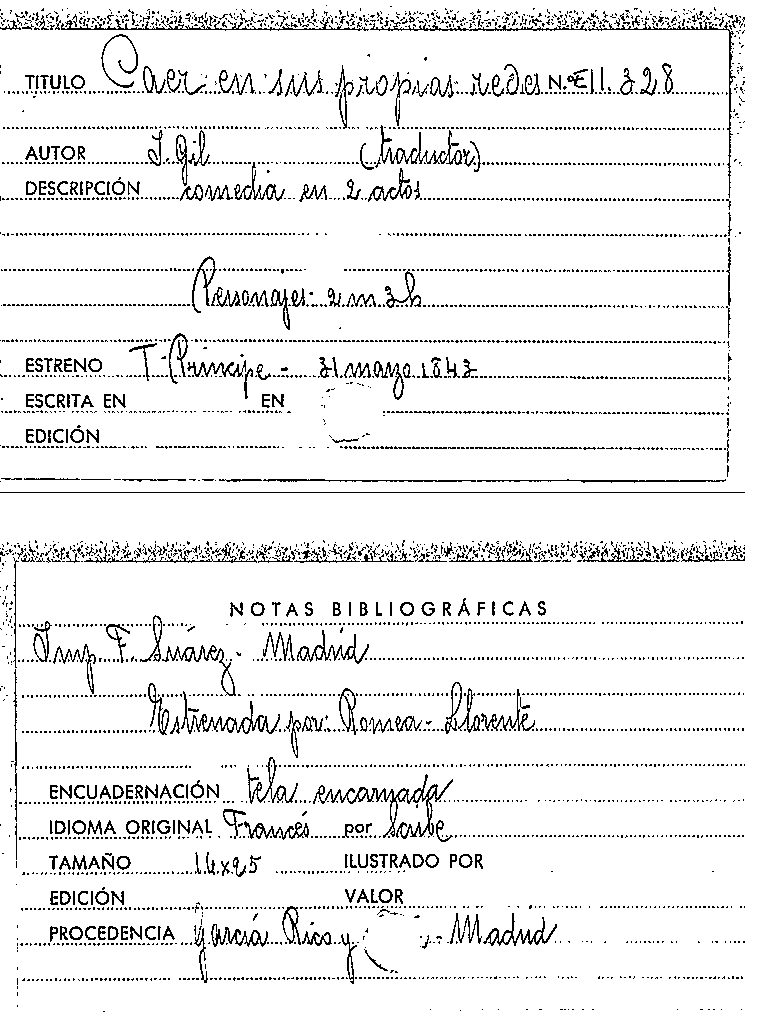 TITULO Caer en sus propias redes N.º E11.328
AUTOR I. Gil (traductor)
DESCRIPCIÓN comedia en 2 actos
Personajes - 2 m 3 h
ESTRENO T. Principe - 31 marzo 1843
ESCRITA EN EN
EDICIÓN
NOTAS BIBLIOGRÁFICAS
Imp F. Suárez - Madrid
Estrenada por: Romea - Llorente
ENCUADERNACIÓN tela encarnada
IDIOMA ORIGINAL Francés por Scribe
TAMAÑO 14x25 ILUSTRADO POR
EDICIÓN VALOR
PROCEDENCIA García Rico y - Madrid